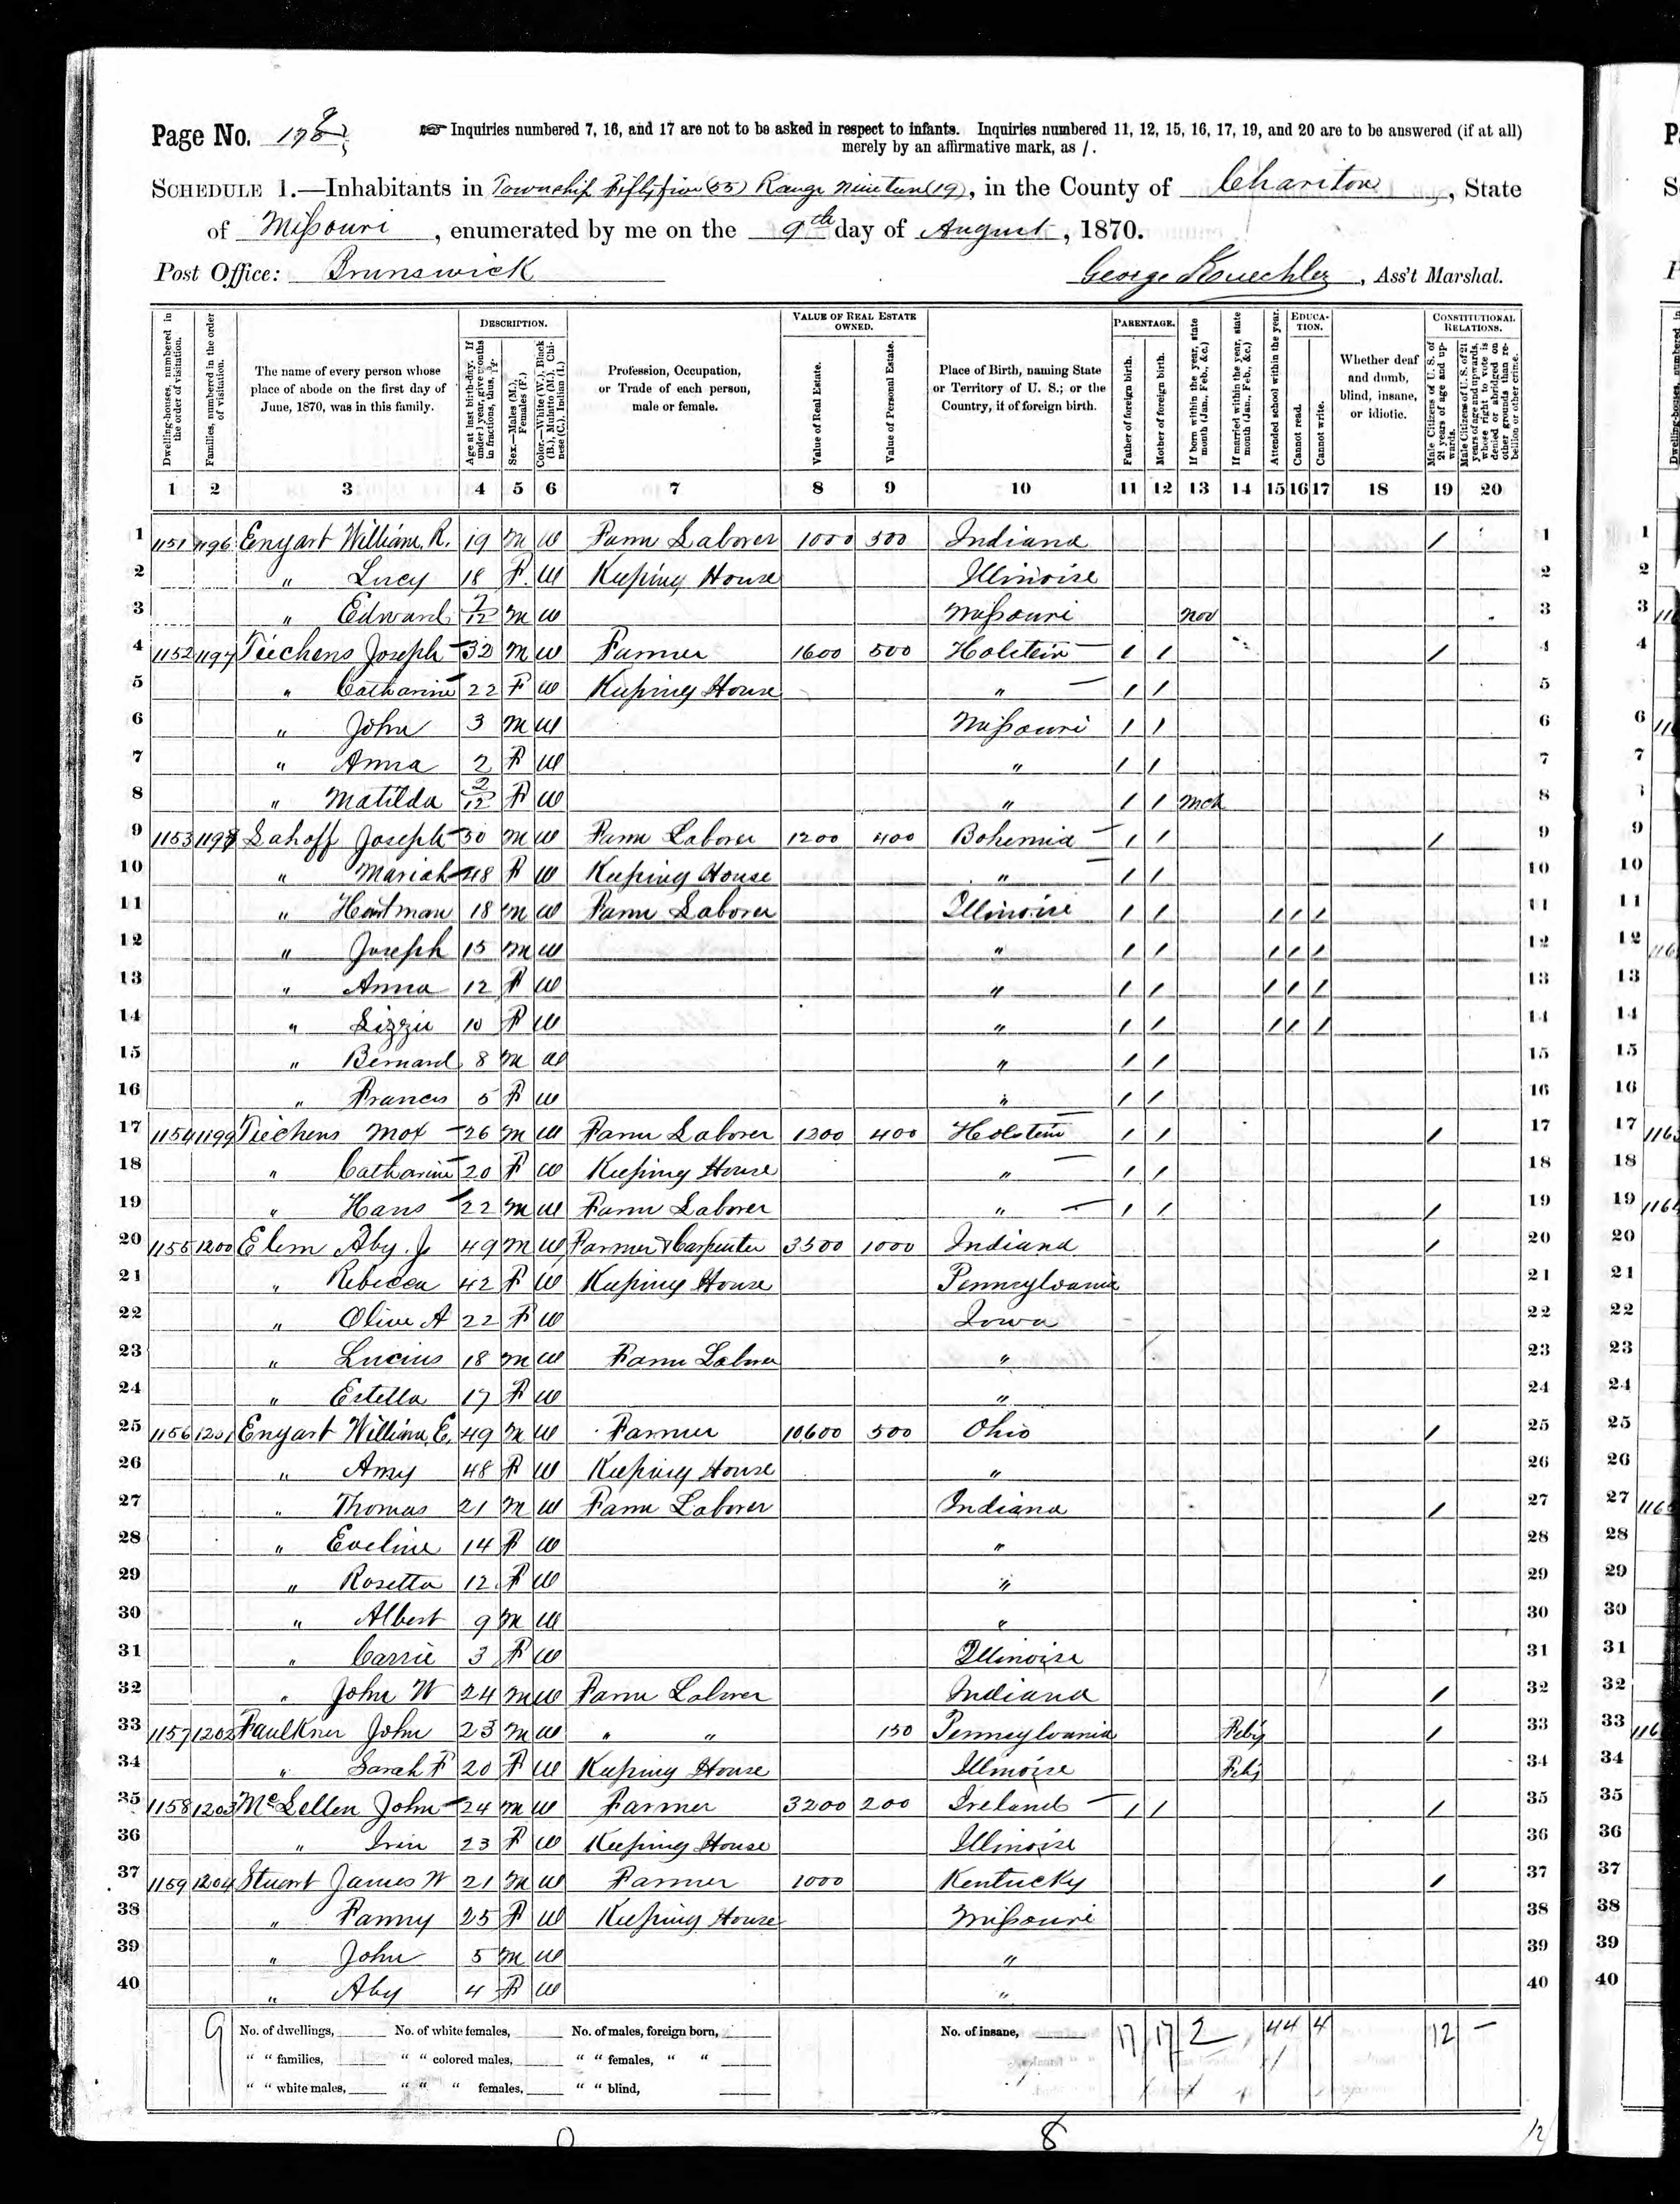 Page No. 178
☞ Inquiries numbered 7, 16, and 17 are not to be asked in respect to infants. Inquiries numbered 11, 12, 15, 16, 17, 19, and 20 are to be answered (if at all)
merely by an affirmative mark, as /.
SCHEDULE 1.—Inhabitants in Township Fifty five (55) Range Nineteen (19), in the County of Chariton, State
of Missouri, enumerated by me on the 9th day of August, 1870.
Post Office: Brunswick George Kuechler, Ass't Marshal.
DESCRIPTION. VALUE OF REAL ESTATE OWNED. PARENTAGE. EDUCATION. CONSTITUTIONAL RELATIONS.
Dwelling-houses, numbered in the order of visitation.
Families, numbered in the order of visitation.
The name of every person whose place of abode on the first day of June, 1870, was in this family.
Age at last birth-day. If under 1 year, give months in fractions, thus, 3/12
Sex.—Males (M.), Females (F.)
Color.—White (W.), Black (B.), Mulatto (M.), Chinese (C.), Indian (I.)
Profession, Occupation, or Trade of each person, male or female.
Value of Real Estate.
Value of Personal Estate.
Place of Birth, naming State or Territory of U. S.; or the Country, if of foreign birth.
Father of foreign birth.
Mother of foreign birth.
If born within the year, state month (Jan., Feb., &c.)
If married within the year, state month (Jan., Feb., &c.)
Attended school within the year.
Cannot read.
Cannot write.
Whether deaf and dumb, blind, insane, or idiotic.
Male Citizens of U. S. of 21 years of age and upwards.
Male Citizens of U. S. of 21 years of age and upwards, whose right to vote is denied or abridged on other grounds than rebellion or other crime.
1 2 3 4 5 6 7 8 9 10 11 12 13 14 15 16 17 18 19 20
1 1151 1196 Enyart William R. 19 M W Farm Laborer 1000 500 Indiana / 1
2 " Lucy 18 F W Keeping House Illinoise 2
3 " Edward 7/12 M W Missouri Nov 3
4 1152 1197 Tiechens Joseph 32 M W Farmer 1600 500 Holstein / / / 4
5 " Catharine 22 F W Keeping House " / / 5
6 " John 3 M W Missouri / / 6
7 " Anna 2 F W " / / 7
8 " Matilda 2/12 F W " / / Mch 8
9 1153 1198 Sahoff Joseph 50 M W Farm Laborer 1200 400 Bohemia / / / 9
10 " Mariah 48 F W Keeping House " / / 10
11 " 18 M W Farm Laborer Illinoise / / / / / 11
12 " Joseph 15 M W " / / / / / 12
13 " Anna 12 F W " / / / / / 13
14 " Lizzie 10 F W " / / / / / 14
15 " Bernard 8 M W " / / 15
16 " Frances 5 F W " / / 16
17 1154 1199 Tiechens Max 26 M W Farm Laborer 1200 400 Holstein / / / 17
18 " Catharine 20 F W Keeping House " / / 18
19 " Hans 22 M W Farm Laborer " / / / 19
20 1155 1200 Elem Aby. J. 49 M W Farmer & Carpenter 3500 1000 Indiana / 20
21 " Rebecca 42 F W Keeping House Pennsylvania 21
22 " Olive A 22 F W Iowa 22
23 " Lucius 18 M W Farm Laborer " 23
24 " Estella 17 F W " 24
25 1156 1201 Enyart William E. 49 M W Farmer 10600 500 Ohio / 25
26 " Amy 48 F W Keeping House " 26
27 " Thomas 21 M W Farm Laborer Indiana / 27
28 " Eveline 14 F W " 28
29 " Rosetta 12 F W " 29
30 " Albert 9 M W " 30
31 " Carrie 3 F W Illinoise 31
32 " John W 24 M W Farm Laborer Indiana / 32
33 1157 1202 Faulkner John 23 M W " " 150 Pennsylvania Feby / 33
34 " Sarah F 20 F W Keeping House Illinoise Feby 34
35 1158 1203 McLellen John 24 M W Farmer 3200 200 Ireland / / / 35
36 " 23 F W Keeping House Illinoise 36
37 1159 1204 Stuart James W 21 M W Farmer 1000 Kentucky / 37
38 " Fanny 25 F W Keeping House Missouri 38
39 " John 5 M W " 39
40 " Aby 4 F W " 40
9 No. of dwellings, No. of white females, No. of males, foreign born, No. of insane, 17 17 2 4 4 4 12 —
" " families, " " colored males, " " females, " "
" " white males, " " " females, " " blind,
8